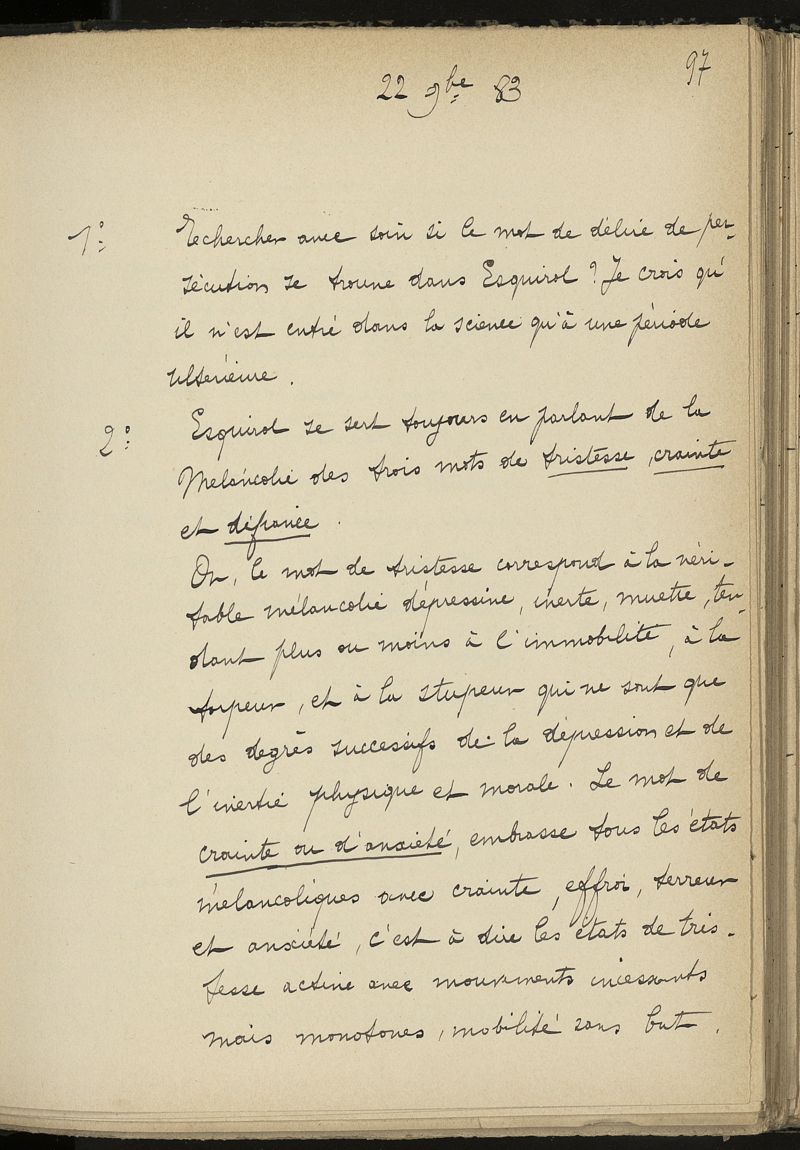 97
22 9bre 83
1° Rechercher avec soin si le mot de délire de per-
sécution se trouve dans Esquirol ? Je crois qu'
il n'est entré dans la science qu'à une période
ultérieure .
2° Esquirol se sert toujours en parlant de la
Mélancolie des trois mots de tristesse , crainte
et défiance .
Or, le mot de tristesse correspond à la véri-
table mélancolie dépressive, inerte, muette, ten-
dant plus ou moins à l'immobilité, à la
torpeur, et à la stupeur qui ne sont que
des degrés successifs de la dépression et de
l'inertie physique et morale. Le mot de
crainte ou d'anxiété, embrasse tous les états
mélancoliques avec crainte, effroi, terreur
et anxiété, c'est à dire les états de tris-
tesse active avec mouvements incessants
mais monotones, mobilité sans but .